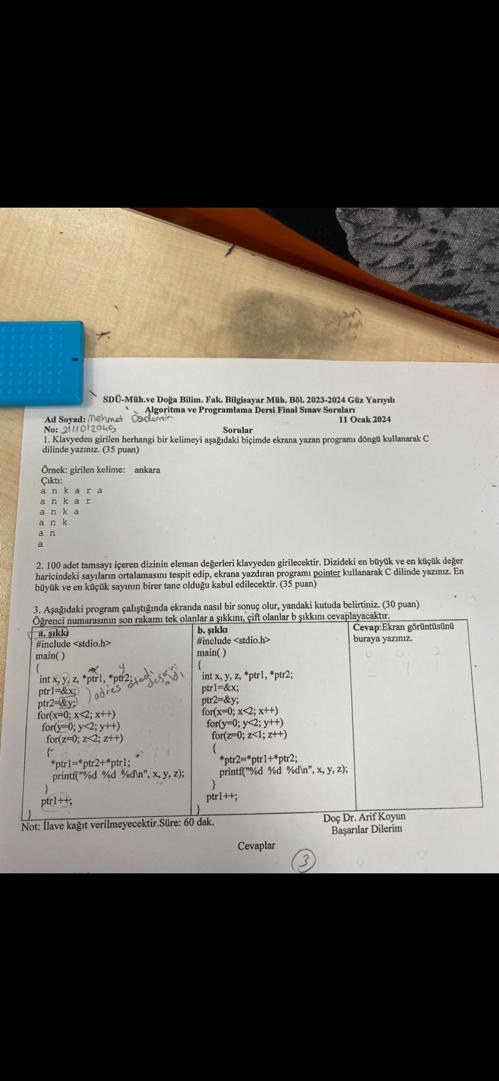 SDÜ-Müh.ve Doğa Bilim. Fak. Bilgisayar Müh. Böl. 2023-2024 Güz Yarıyılı
Algoritma ve Programlama Dersi Final Sınav Soruları
Ad Soyad: Mehmet Özdemir 11 Ocak 2024
No: 2111012045 Sorular
1. Klavyeden girilen herhangi bir kelimeyi aşağıdaki biçimde ekrana yazan programı döngü kullanarak C
dilinde yazınız. (35 puan)
Örnek: girilen kelime: ankara
Çıktı:
a n k a r a
a n k a r
a n k a
a n k
a n
a
2. 100 adet tamsayı içeren dizinin eleman değerleri klavyeden girilecektir. Dizideki en büyük ve en küçük değer
haricindeki sayıların ortalamasını tespit edip, ekrana yazdıran programı pointer kullanarak C dilinde yazınız. En
büyük ve en küçük sayının birer tane olduğu kabul edilecektir. (35 puan)
3. Aşağıdaki program çalıştığında ekranda nasıl bir sonuç olur, yandaki kutuda belirtiniz. (30 puan)
Öğrenci numarasının son rakamı tek olanlar a şıkkını, çift olanlar b şıkkını cevaplayacaktır.
a. şıkkı
#include <stdio.h>
main( )
{
x y
int x, y, z, *ptr1, *ptr2;
ptr1=&x;
ptr2=&y;
adres atadı
değeri
aldı
for(x=0; x<2; x++)
for(y=0; y<2; y++)
for(z=0; z<2; z++)
{
*ptr1=*ptr2+*ptr1;
printf("%d %d %d\n", x, y, z);
}
ptr1++;
}
b. şıkkı
#include <stdio.h>
main( )
{
int x, y, z, *ptr1, *ptr2;
ptr1=&x;
ptr2=&y;
for(x=0; x<2; x++)
for(y=0; y<2; y++)
for(z=0; z<1; z++)
{
*ptr2=*ptr1+*ptr2;
printf("%d %d %d\n", x, y, z);
}
ptr1++;
}
Cevap:Ekran görüntüsünü
buraya yazınız.
Not: İlave kağıt verilmeyecektir.Süre: 60 dak.
Doç Dr. Arif Koyun
Başarılar Dilerim
Cevaplar
3